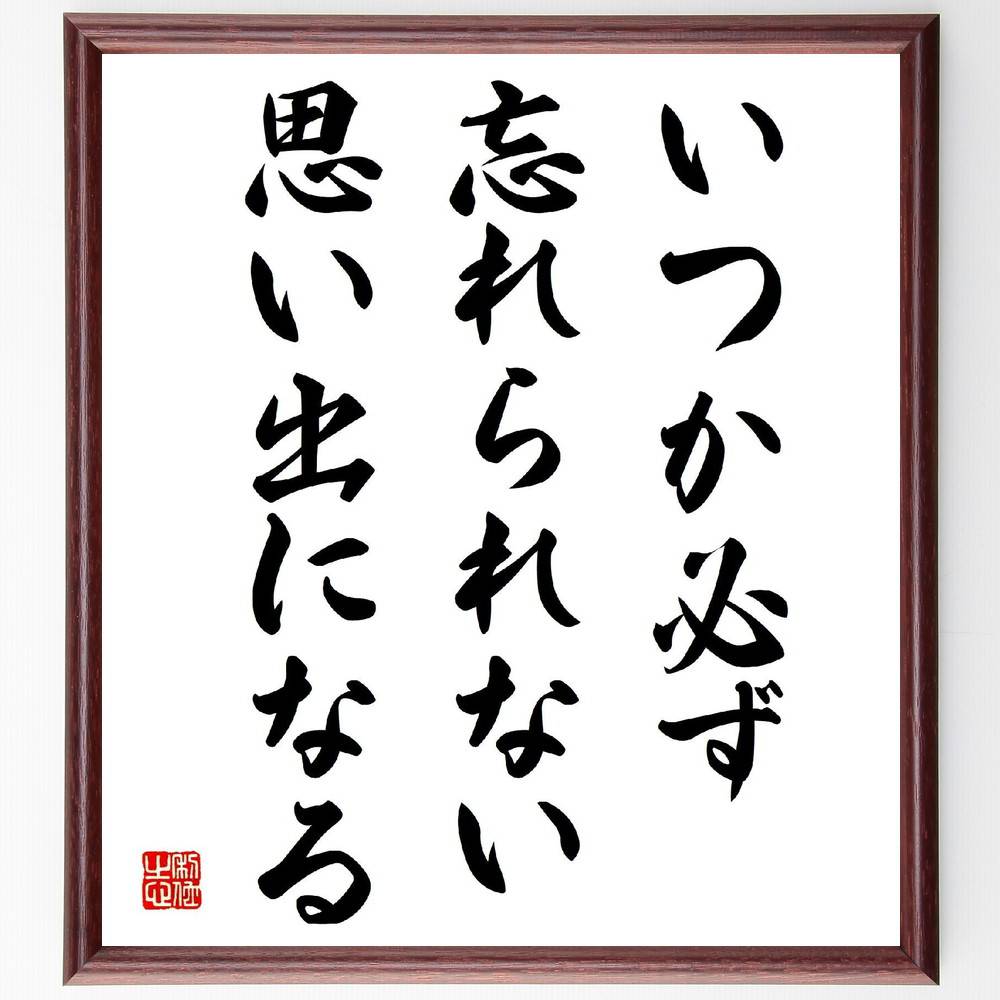 いつか必ず
忘れられない
思い出になる